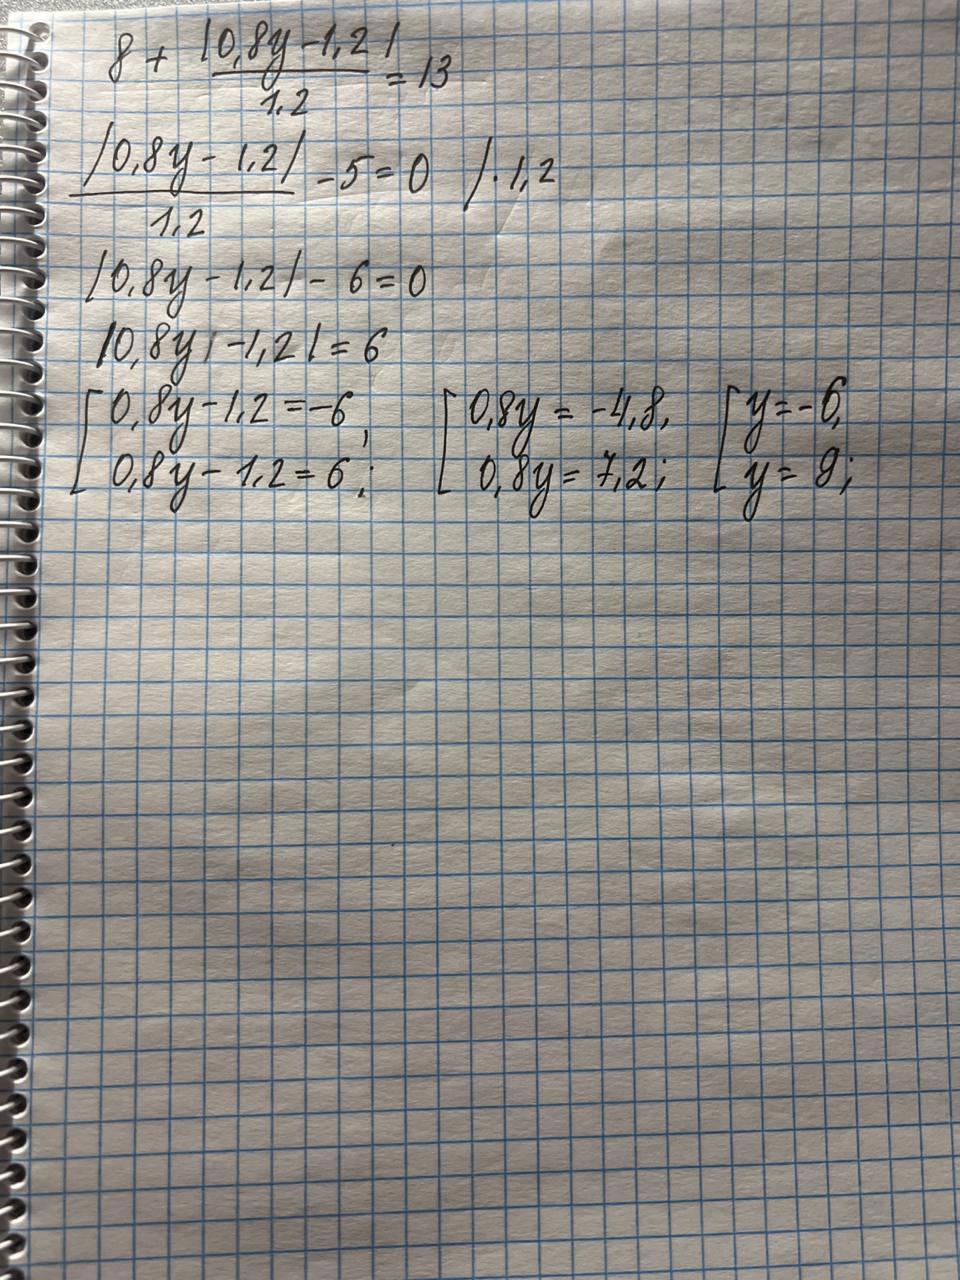 8 + |0,8y - 1,2| / 1.2 = 13
|0,8y - 1,2| / 1.2 - 5 = 0 / · 1,2
|0,8y - 1,2| - 6 = 0
|0,8y - 1,2| = 6
[ 0,8y - 1.2 = -6, [ 0,8y = -4,8, [ y = -6,
0,8y - 1.2 = 6; 0,8y = 7,2; y = 9;